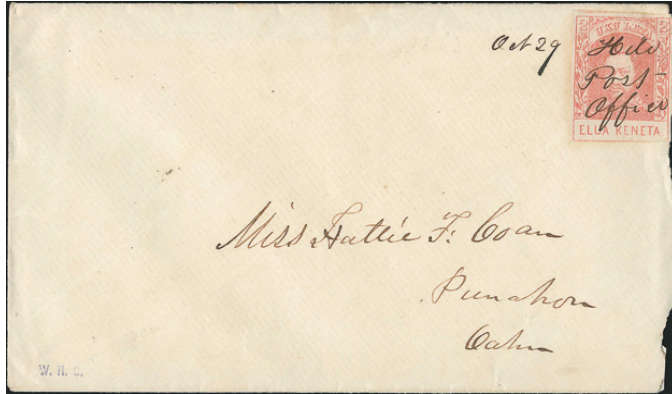 Oct 29 Hilo
Post
Office
ELUA KENETA
Miss Hattie F. Coan
Punahou
Oahu
W. H. C.